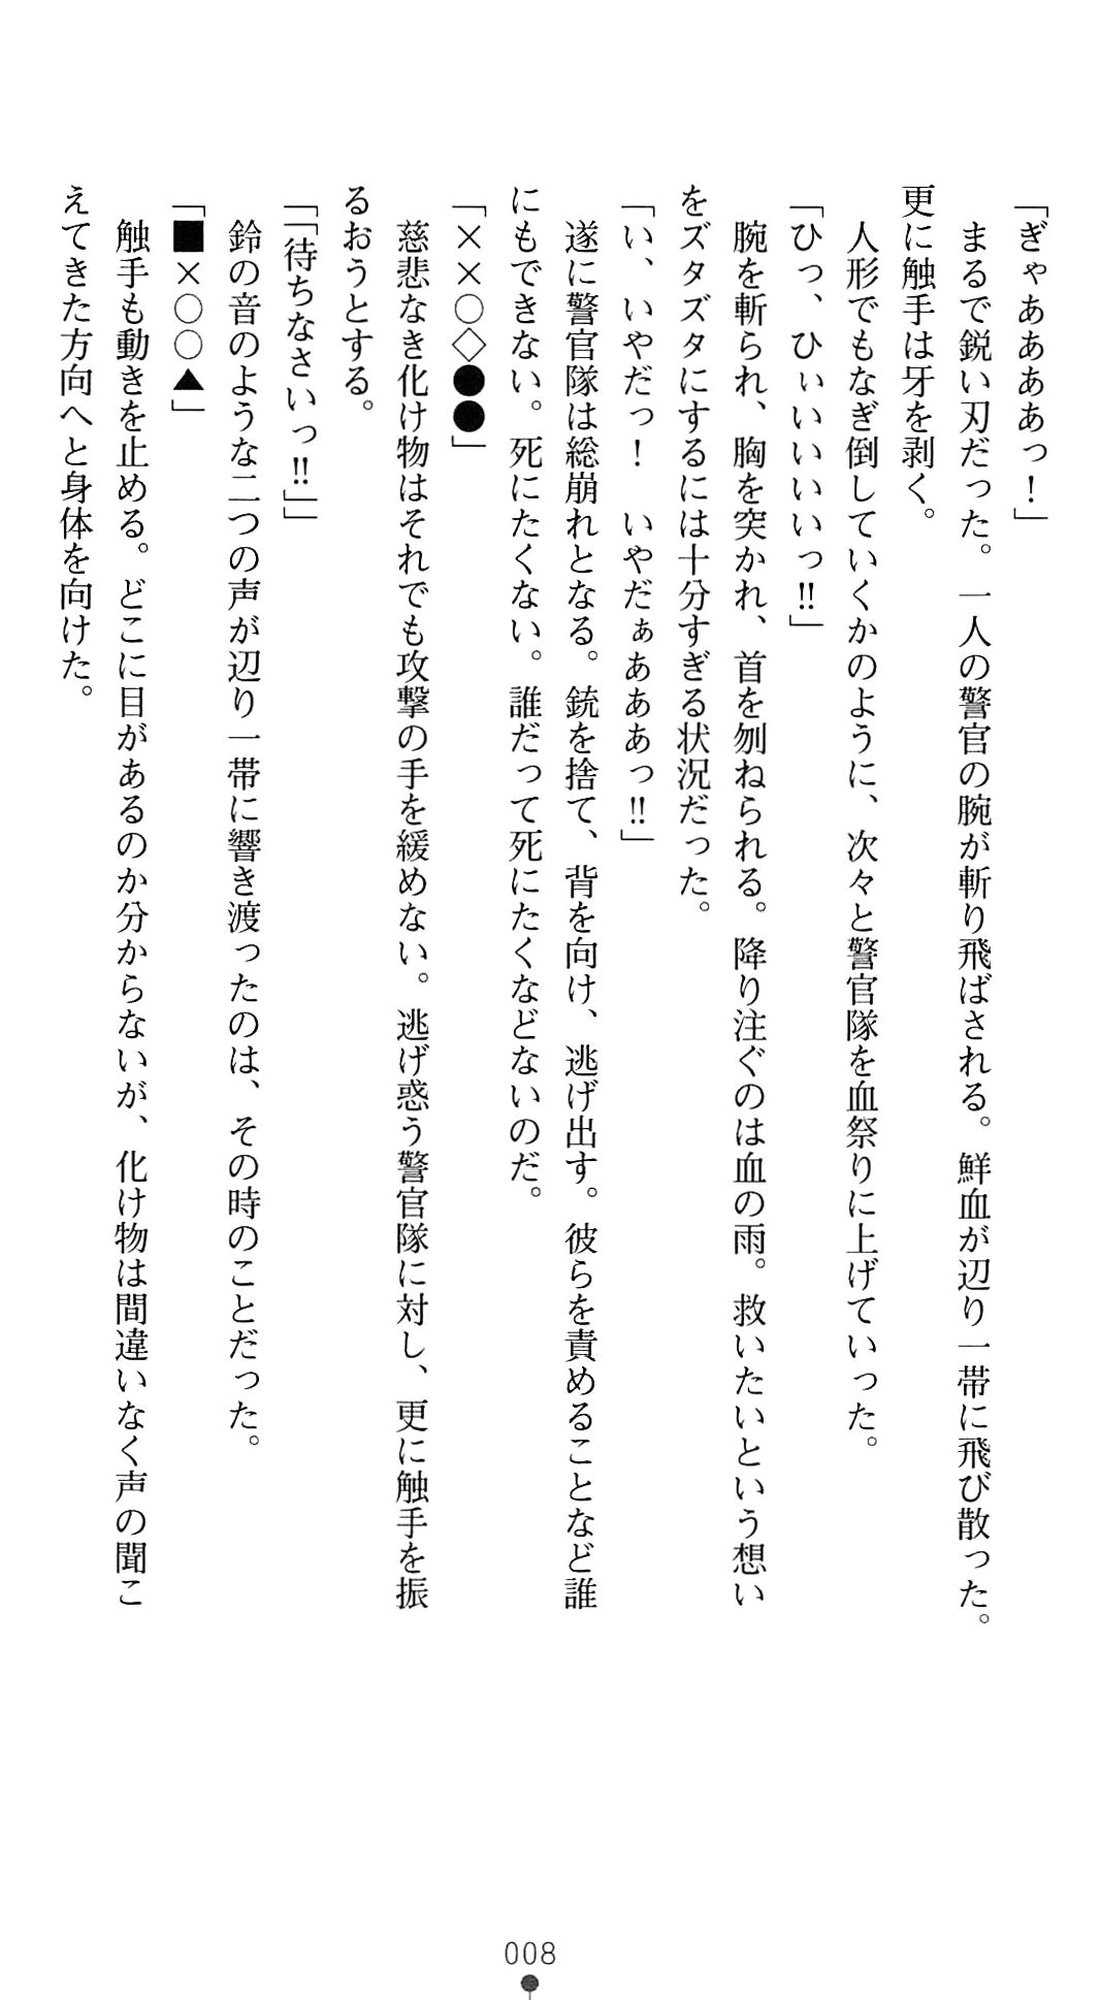 「ぎゃああああっ！」
　まるで鋭い刃だった。一人の警官の腕が斬り飛ばされる。鮮血が辺り一帯に飛び散った。
更に触手は牙を剥く。
　人形でもなぎ倒していくかのように、次々と警官隊を血祭りに上げていった。
「ひっ、ひぃいいいいっ‼」
　腕を斬られ、胸を突かれ、首を刎ねられる。降り注ぐのは血の雨。救いたいという想い
をズタズタにするには十分すぎる状況だった。
「い、いやだっ！　いやだぁあああっ‼」
　遂に警官隊は総崩れとなる。銃を捨て、背を向け、逃げ出す。彼らを責めることなど誰
にもできない。死にたくない。誰だって死にたくなどないのだ。
「××○◇●●」
　慈悲なき化け物はそれでも攻撃の手を緩めない。逃げ惑う警官隊に対し、更に触手を振
るおうとする。
「「待ちなさいっ‼」」
　鈴の音のような二つの声が辺り一帯に響き渡ったのは、その時のことだった。
「■×○○▲」
　触手も動きを止める。どこに目があるのか分からないが、化け物は間違いなく声の聞こ
えてきた方向へと身体を向けた。
008